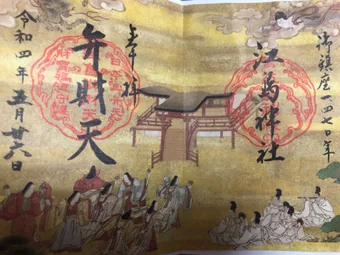 御鎮座一四七〇年
江島神社
奉拝
弁財天
令和四年五月廿六日